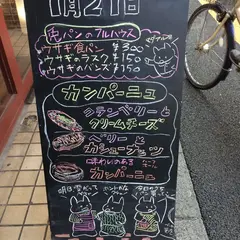 1月21日
パンのフルハウス
ウサギ食パン ¥300
ウサギのラスク ¥150
ウサギのバンズ ¥150
カンパーニュ
クランベリーと
クリームチーズ
ベリーと
カシューナッツ
味わいのある
カンパーニュ